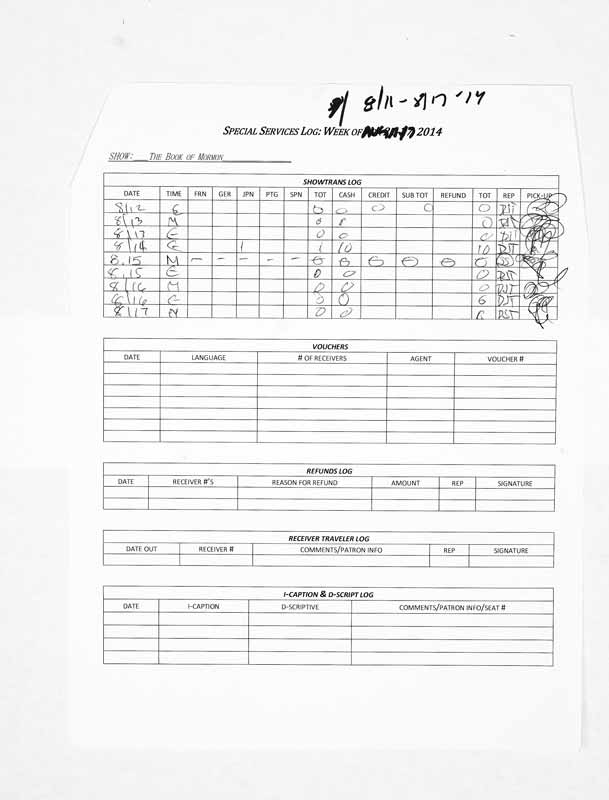 8/11 - 8/17 '14
SPECIAL SERVICES LOG: WEEK OF 2014
SHOW: THE BOOK OF MORMON
SHOWTRANS LOG
DATE TIME FRN GER JPN PTG SPN TOT CASH CREDIT SUB TOT REFUND TOT REP PICK-UP
8/12 E 0 0 0 0 0 DST
8/13 M 0 0 0
8/13 E 0 0 0
8/14 E 1 1 10 10 DST
8.15 M - - - - - 0 0 0 0 0 0
8.15 E 0 0 0 DST
8/16 M 0 0 0 DST
8/16 E 0 0 0 DST
8/17 M 0 0 DST
VOUCHERS
DATE LANGUAGE # OF RECEIVERS AGENT VOUCHER #
REFUNDS LOG
DATE RECEIVER #'S REASON FOR REFUND AMOUNT REP SIGNATURE
RECEIVER TRAVELER LOG
DATE OUT RECEIVER # COMMENTS/PATRON INFO REP SIGNATURE
I-CAPTION & D-SCRIPT LOG
DATE I-CAPTION D-SCRIPTIVE COMMENTS/PATRON INFO/SEAT #